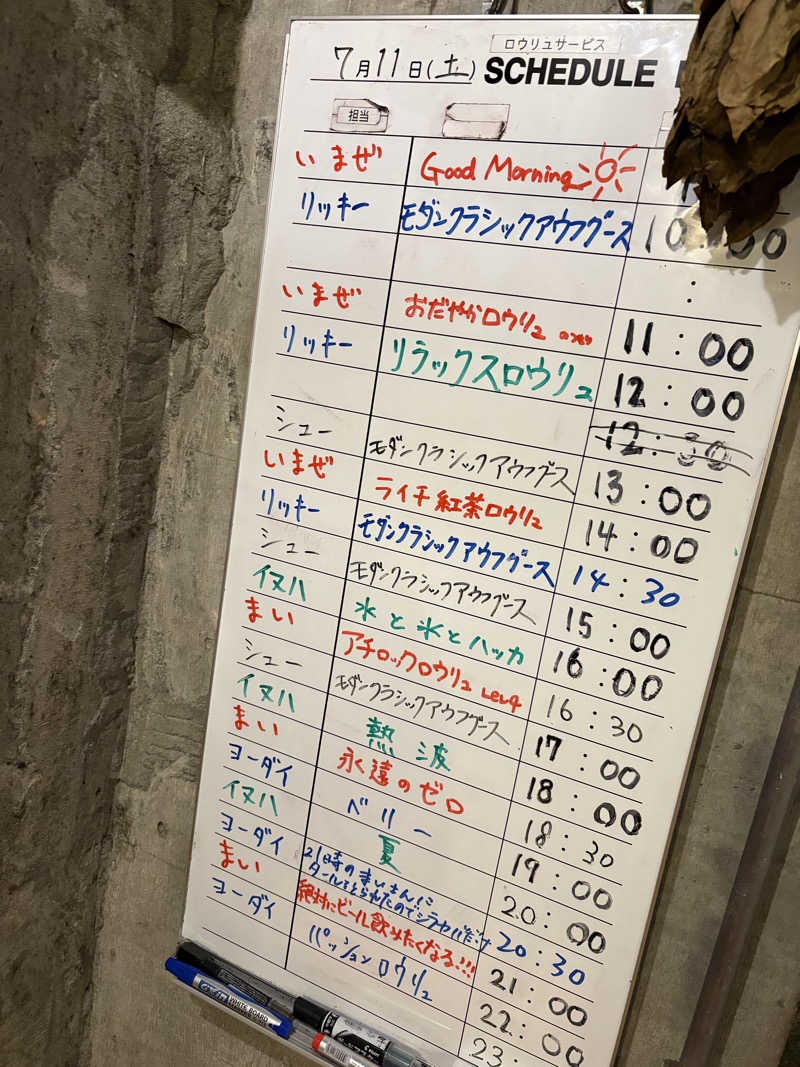 ロウリュサービス
7月11日(土) SCHEDULE
担当
いまぜ Good Morning
リッキー モダンクラシックアウフグース 10:00
:
いまぜ おだやかロウリュ 11:00
リッキー リラックスロウリュ 12:00
12:30
シュー モダンクラシックアウフグース 13:00
いまぜ ライチ紅茶ロウリュ 14:00
リッキー モダンクラシックアウフグース 14:30
シュー モダンクラシックアウフグース 15:00
イヌハ 水と氷とハッカ 16:00
まい アチロックロウリュ LEV4 16:30
シュー モダンクラシックアウフグース 17:00
イヌハ 熱波 18:00
まい 永遠のゼロ 18:30
ヨーダイ ベリー 19:00
イヌハ 夏 20:00
ヨーダイ 21時のまいさんに
タールをとられたのでシラカバだけ 20:30
まい 絶対にビール飲みたくなる!!! 21:00
ヨーダイ パッションロウリュ 22:00
23:
WHITE BOARD